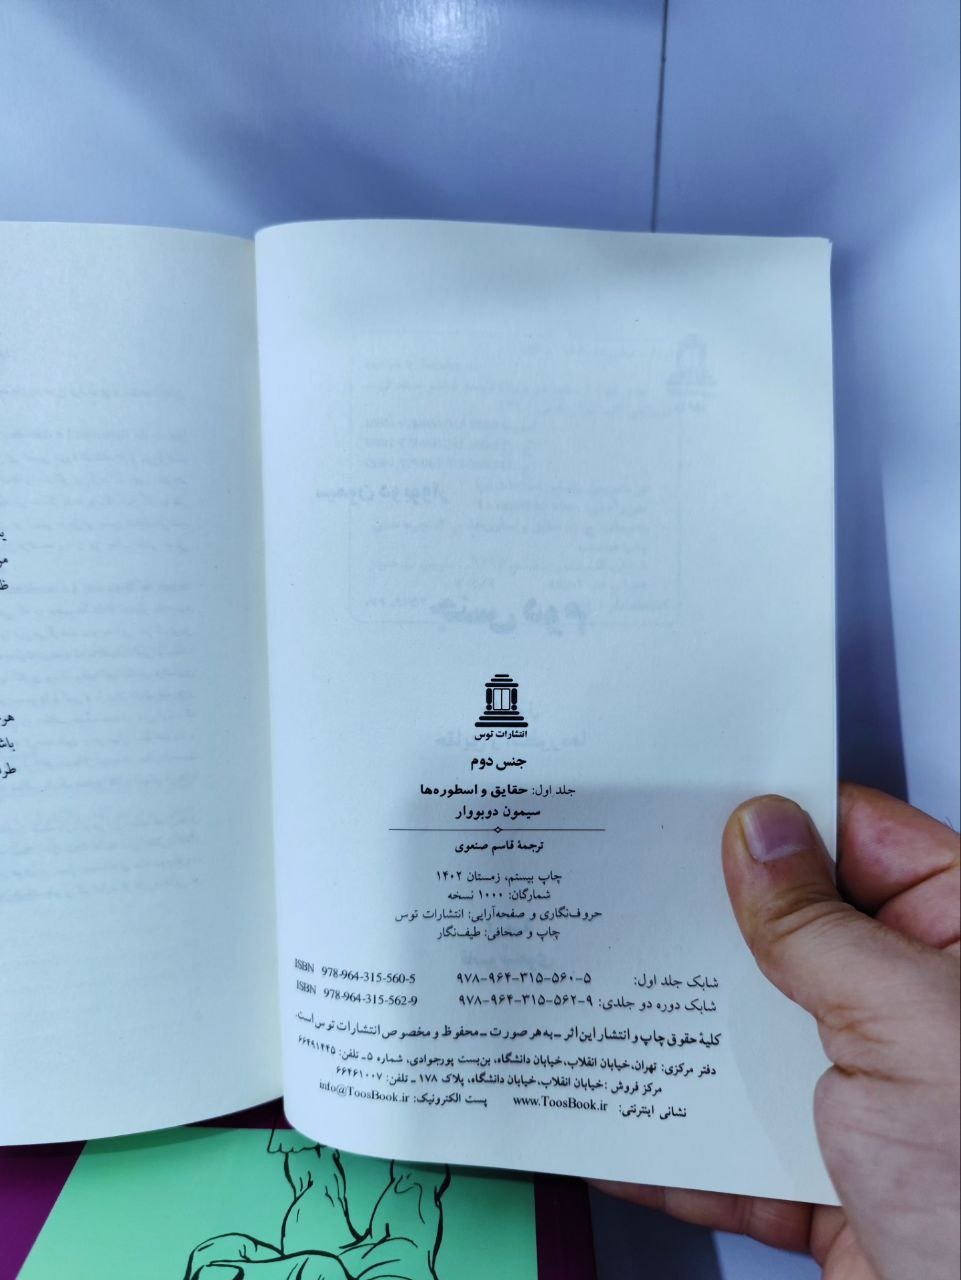 انتشارات توس
جنس دوم
جلد اول: حقایق و اسطوره‌ها
سیمون دوبووار
ترجمهٔ قاسم صنعوی
چاپ بیستم، زمستان ۱۴۰۲
شمارگان: ۱۰۰۰ نسخه
حروف‌نگاری و صفحه‌آرایی: انتشارات توس
چاپ و صحافی: طیف‌نگار
شابک جلد اول: ۹۷۸-۹۶۴-۳۱۵-۵۶۰-۵ ISBN 978-964-315-560-5
شابک دوره دو جلدی: ۹۷۸-۹۶۴-۳۱۵-۵۶۲-۹ ISBN 978-964-315-562-9
کلیهٔ حقوق چاپ و انتشار این اثر ـ به هر صورت ـ محفوظ و مخصوص انتشارات توس است.
دفتر مرکزی: تهران، خیابان انقلاب، خیابان دانشگاه، بن‌بست پورجوادی، شماره ۵ ـ تلفن: ۶۶۴۹۱۴۴۵
مرکز فروش: خیابان انقلاب، خیابان دانشگاه، پلاک ۱۷۸ ـ تلفن: ۶۶۴۶۱۰۰۷
نشانی اینترنتی: www.ToosBook.ir پست الکترونیک: info@ToosBook.ir